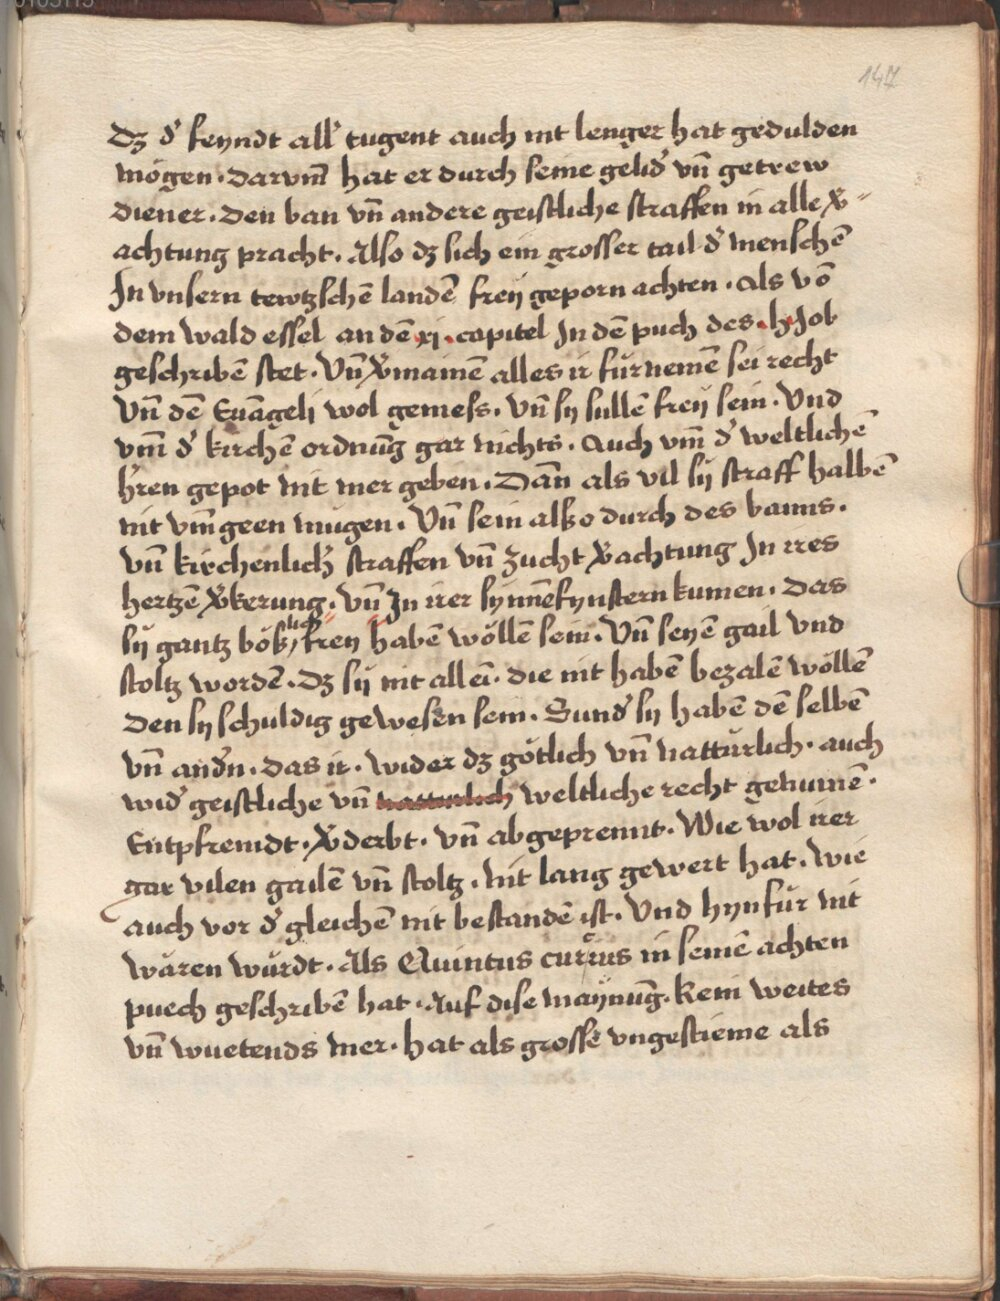 147
Dz d' feyndt all' tugent auch nit lenger hat gedulden
mögen. Darvm̄ hat er durch seine gelid' vn̄ getrew
diener. Den ban vn̄ andere geistliche straffen in alle v'„
achtung pracht. Also dz sich ein grosser tail d' menschē
In vnsern tewtzschē landē freÿ geporn achten. als vō
dem wald essel an dē xi. capitel In dē puch des. h. Job
geschribē stet. Vn̄ v'mainē alles ir fürnemē sei recht
vn̄ dē Euāgelj wol gemess. vn̄ sy sullē freÿ sein. Vnd
vm̄ d' kirchē ordnūg gar nichts. Auch vm̄ d' weltlichē
h'ren gepot nit mer geben. Dān als vil sÿ straff halbē
nit vm̄geen mugen. Vn̄ sein also durch des banns.
vn̄ kirchenlich' straffen vn̄ zucht v'achtung In ires
hertzē v'kerung. vn̄ In irer synnē fynstern kumen. Das
sÿ gantz bößlich freÿ habē wöllē sein. Vn̄ seyē gail vnd
stoltz wordē. Dz sÿ nit alleī. die nit habē bezalē wöllē
Den sy schuldig gewesen sein. Sund' sy habē dē selbē
vn̄ and'n. das ir. wider dz götlich vn̄ natturlich. auch
wid' geistliche vn̄ weltliche recht genumē.
Entpfremdt. v'derbt. vn̄ abgeprennt. Wie wol irer
gar vilen gailē vn̄ stoltz. nit lang gewert hat. wie
auch vor d' gleichē nit bestandē ist. Vnd hynfür nit
wären würdt. Als Quintus curtius in seinē achten
puech geschribē hat. Auf dise maÿnūg. Kein weites
vn̄ wuetends mer. hat als grosse vngestieme als